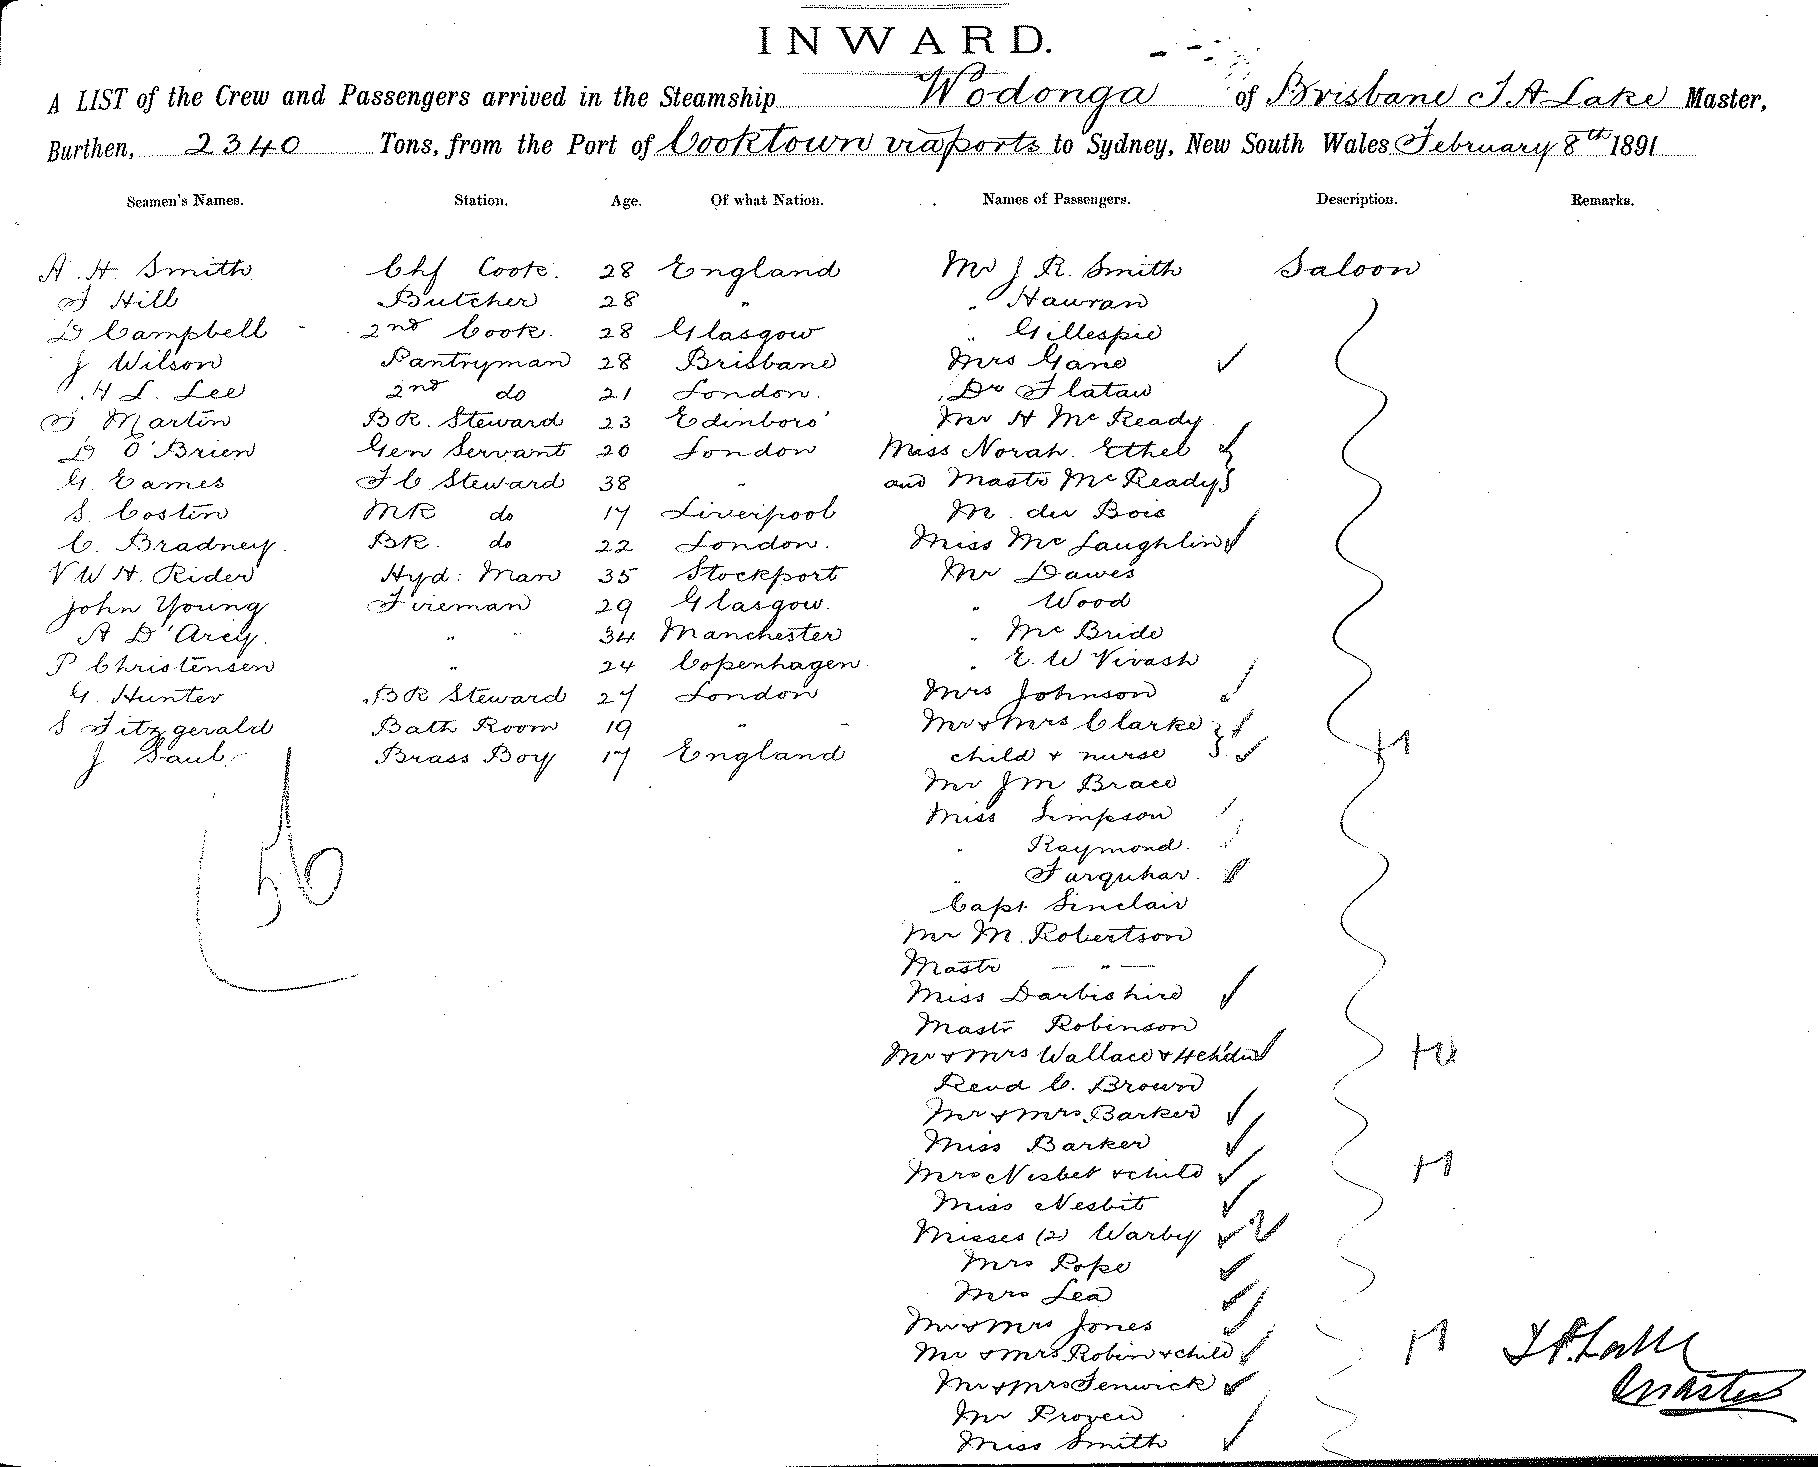 INWARD.
A LIST of the Crew and Passengers arrived in the Steamship Wodonga of Brisbane T A Lake Master,
Burthen, 2340 Tons, from the Port of Cooktown via ports to Sydney, New South Wales February 8th 1891
Seamen's Names. Station. Age. Of what Nation. Names of Passengers. Description. Remarks.
A. H. Smith Chf Cook. 28 England Mr J R. Smith Saloon
T Hill Butcher 28 " " Hawran
D Campbell 2nd Cook. 28 Glasgow " Gillespie
J Wilson Pantryman 28 Brisbane Mrs Gane
H L. Lee 2nd do 21 London. Dr Flatau
T Martin BR. Steward 23 Edinboro' Mr H McReady
D O'Brien Gen Servant 20 London Miss Norah. Ethel
G. Eames F C Steward 38 " and Mastr McReady
S. Costin MR do 17 Liverpool M. du Bois
C. Bradney. BR. do 22 London. Miss McLaughlin
V W H. Rider Hyd: Man 35 Stockport Mr Dawes
John Young Fireman 29 Glasgow. " Wood
A D'Arcy. " " 34 Manchester " McBride
P Christensen " 24 Copenhagen. " E. W Vivash
G. Hunter BR Steward 27 London Mrs Johnson
S Fitzgerald Bath Room 19 " Mr & Mrs Clarke
J Saul Brass Boy 17 England child & nurse
Mr J M Brace
Miss Simpson
" Raymond.
" Farquhar.
Capt. Sinclair
56
Mr M. Robertson
Mastr — " —
Miss Darbishire
Mastr Robinson
Mr & Mrs Wallace & 4 chdn
Revd C. Brown
Mr & Mrs Barker
Miss Barker
Mrs Nesbet & child
Miss Nesbit
Misses (2) Warby
Mrs Pope
Mrs Lea
Mr & Mrs Jones
Mr & Mrs Robin & child
Mr & Mrs Fenwick
Mr Proven
Miss Smith
T A. Lake
Master